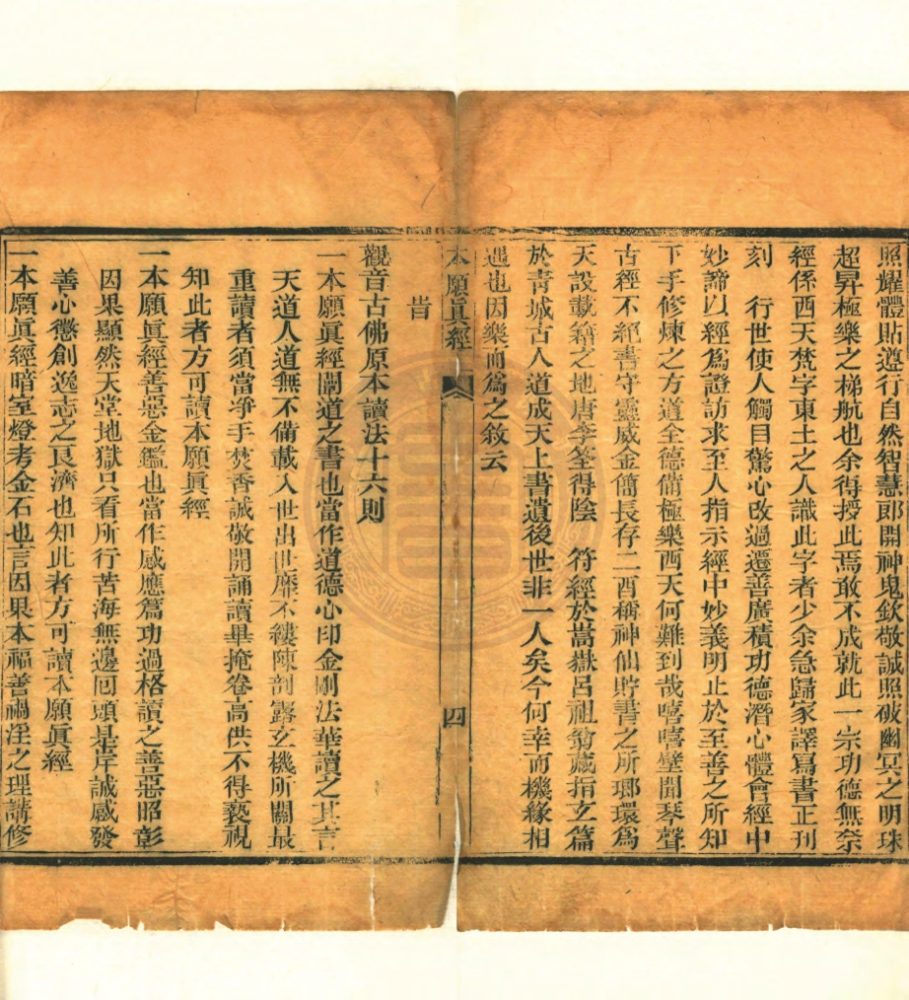 照耀體貼遵行自然智慧郎開神鬼欽敬誠照破幽冥之明珠
超昇極樂之梯航也余得授此焉敢不成就此一宗功德無奈
經係西天梵字東土之人識此字者少余急歸家譯寫書正刊
刻　行世使人觸目驚心改過遷善廣積功德潛心體會經中
妙諦以經為證訪求至人指示經中妙義明止於至善之所知
下手修煉之方道全德備極樂西天何難到哉嘻嘻壁聞琴聲
古經不絕書守靈威金簡長存二酉稱神仙貯書之所瑯環為
天設載籍之地唐李筌得陰　符經於嵩嶽呂祖翁藏指玄篇
於靑城古人道成天上書遺後世非一人矣今何幸而機緣相
遇也因樂而為之敘云
本願眞經
四
旹
觀音古佛原本讀法十六則
一本願眞經闡道之書也當作道德心印金剛法華讀之其言
天道人道無不備載入世出世靡不縷陳剖露玄機所關最
重讀者須當凈手焚香誠敬開誦讀畢掩卷高供不得褻視
知此者方可讀本願眞經
一本願眞經善惡金鑑也當作感應篇功過格讀之善惡昭彰
因果顯然天堂地獄只看所行苦海無邊回頭是岸誠感發
善心懲創逸志之良濟也知此者方可讀本願眞經
一本願眞經暗室燈考金石也言因果本福善禍淫之理講修